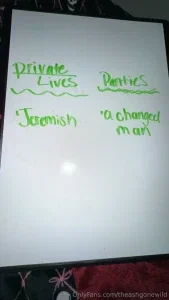 private Lives
Parties
'Jeremish
'a changed man
OnlyFans.com/theashgonewild